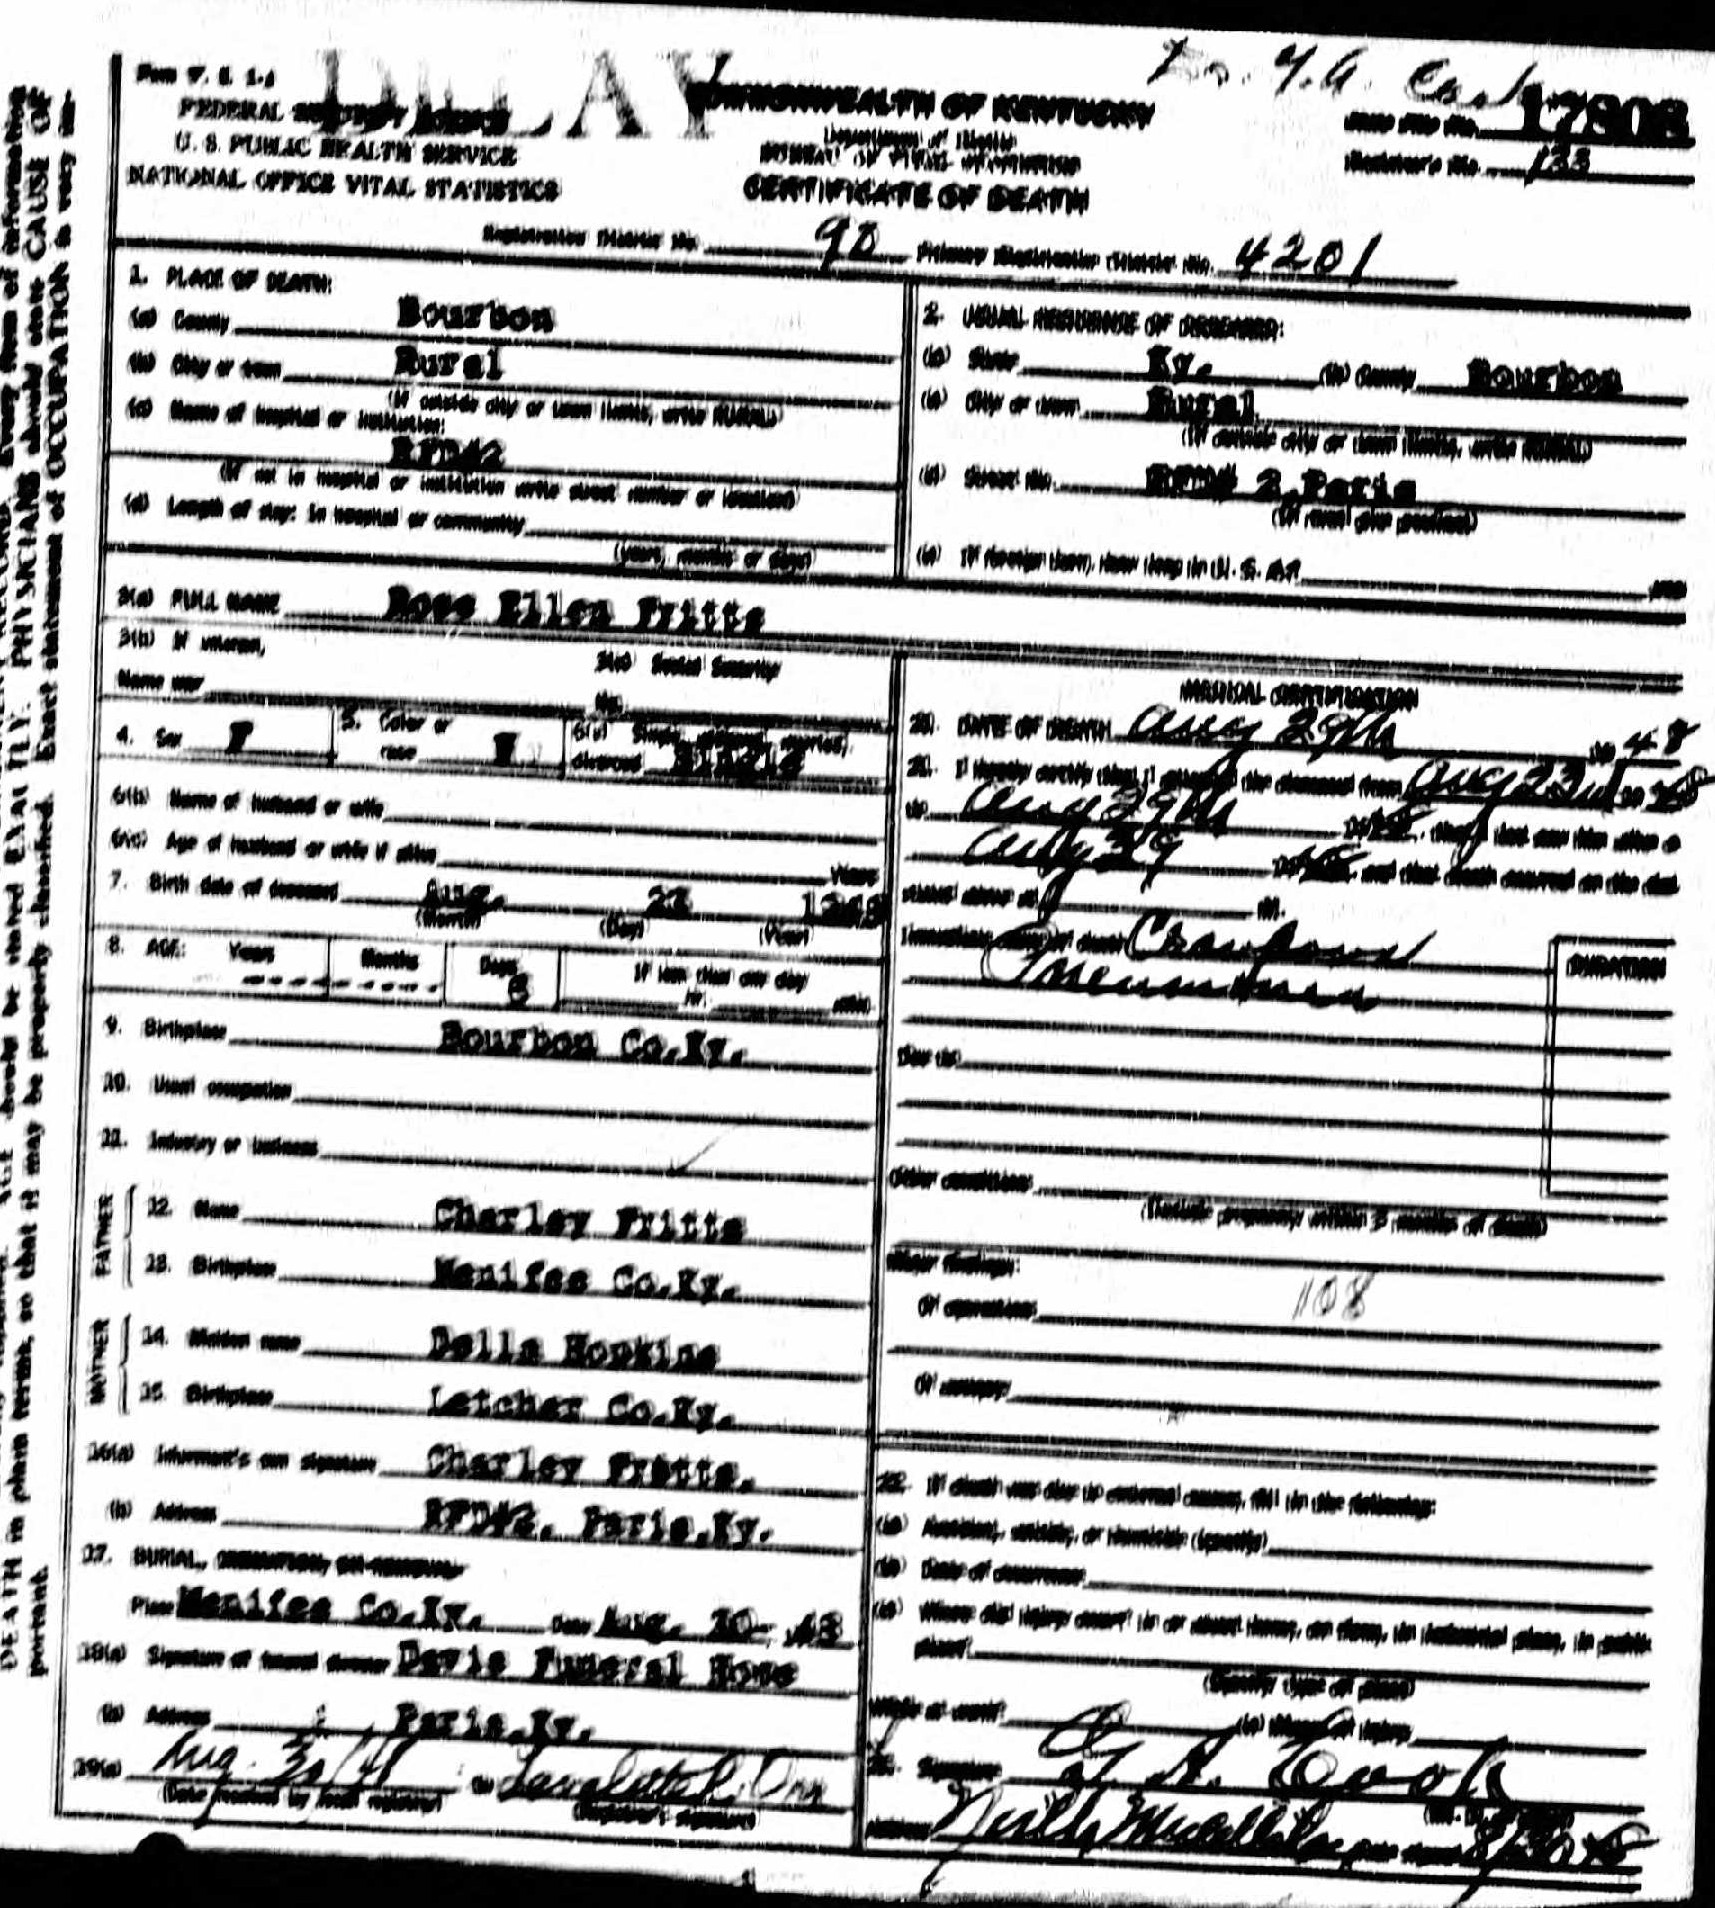 Form V. S. 1-A
DELAY
FEDERAL SECURITY AGENCY
U. S. PUBLIC HEALTH SERVICE
NATIONAL OFFICE VITAL STATISTICS
COMMONWEALTH OF KENTUCKY
Department of Health
BUREAU OF VITAL STATISTICS
CERTIFICATE OF DEATH
State File No. 17808
Registrar's No. 133
Registration District No. 90 Primary Registration District No. 4201
1. PLACE OF DEATH:
(a) County Bourbon
(b) City or town Rural
(If outside city or town limits, write RURAL)
(c) Name of hospital or institution:
RFD#2
(If not in hospital or institution write street number or location)
(d) Length of stay: In hospital or community
(years, months or days)
2. USUAL RESIDENCE OF DECEASED:
(a) State Ky. (b) County Bourbon
(c) City or town Rural
(If outside city or town limits, write RURAL)
(d) Street No. RFD# 2, Paris
(If rural give precinct)
(e) If foreign born, how long in U. S. A.?
3(a) FULL NAME Rose Ellen Fritts
3(b) If veteran,
Name war
3(c) Social Security
No.
4. Sex F
5. Color or
race W
6(a) Single, widowed, married,
divorced Single
6(b) Name of husband or wife
6(c) Age of husband or wife if alive Years
7. Birth date of deceased Aug. 23 1948
(Month) (Day) (Year)
8. AGE: Years Months Days If less than one day
6 hr. min.
9. Birthplace Bourbon Co.Ky.
10. Usual occupation
11. Industry or business
FATHER
12. Name Charley Fritts
13. Birthplace Menifee Co.Ky.
MOTHER
14. Maiden name Della Hopkins
15. Birthplace Letcher Co.Ky.
16(a) Informant's own signature Charley Fritts.
(b) Address RFD#2, Paris,Ky.
17. BURIAL, CREMATION, OR REMOVAL
Place Menifee Co.Ky. Date Aug. 30- 48
18(a) Signature of funeral director Davis Funeral Home
(b) Address Paris,Ky.
19(a) Aug. 30/48 (b)
(Date received by local registrar) (Registrar's signature)
MEDICAL CERTIFICATION
20. DATE OF DEATH Aug 29th 19 48
21. I hereby certify that I attended the deceased from Aug 23rd 19 48
to Aug 29th 19 48, that I last saw him alive on
Aug 29 19 48, and that death occurred on the date
stated above at M.
Immediate cause of death
Pneumonia
DURATION
Due to
Other conditions
(Include pregnancy within 3 months of death)
Major findings:
Of operations 108
Of autopsy
22. If death was due to external causes, fill in the following:
(a) Accident, suicide, or homicide (specify)
(b) Date of occurrence
(c) Where did injury occur? In or about home, on farm, in industrial place, in public
place?
(Specify type of place)
While at work? (e) Means of injury
23. Signature
Address Date signed 8/30/48
DEATH in plain terms, so that it may be properly classified. Exact statement of OCCUPATION is very im-
portant.